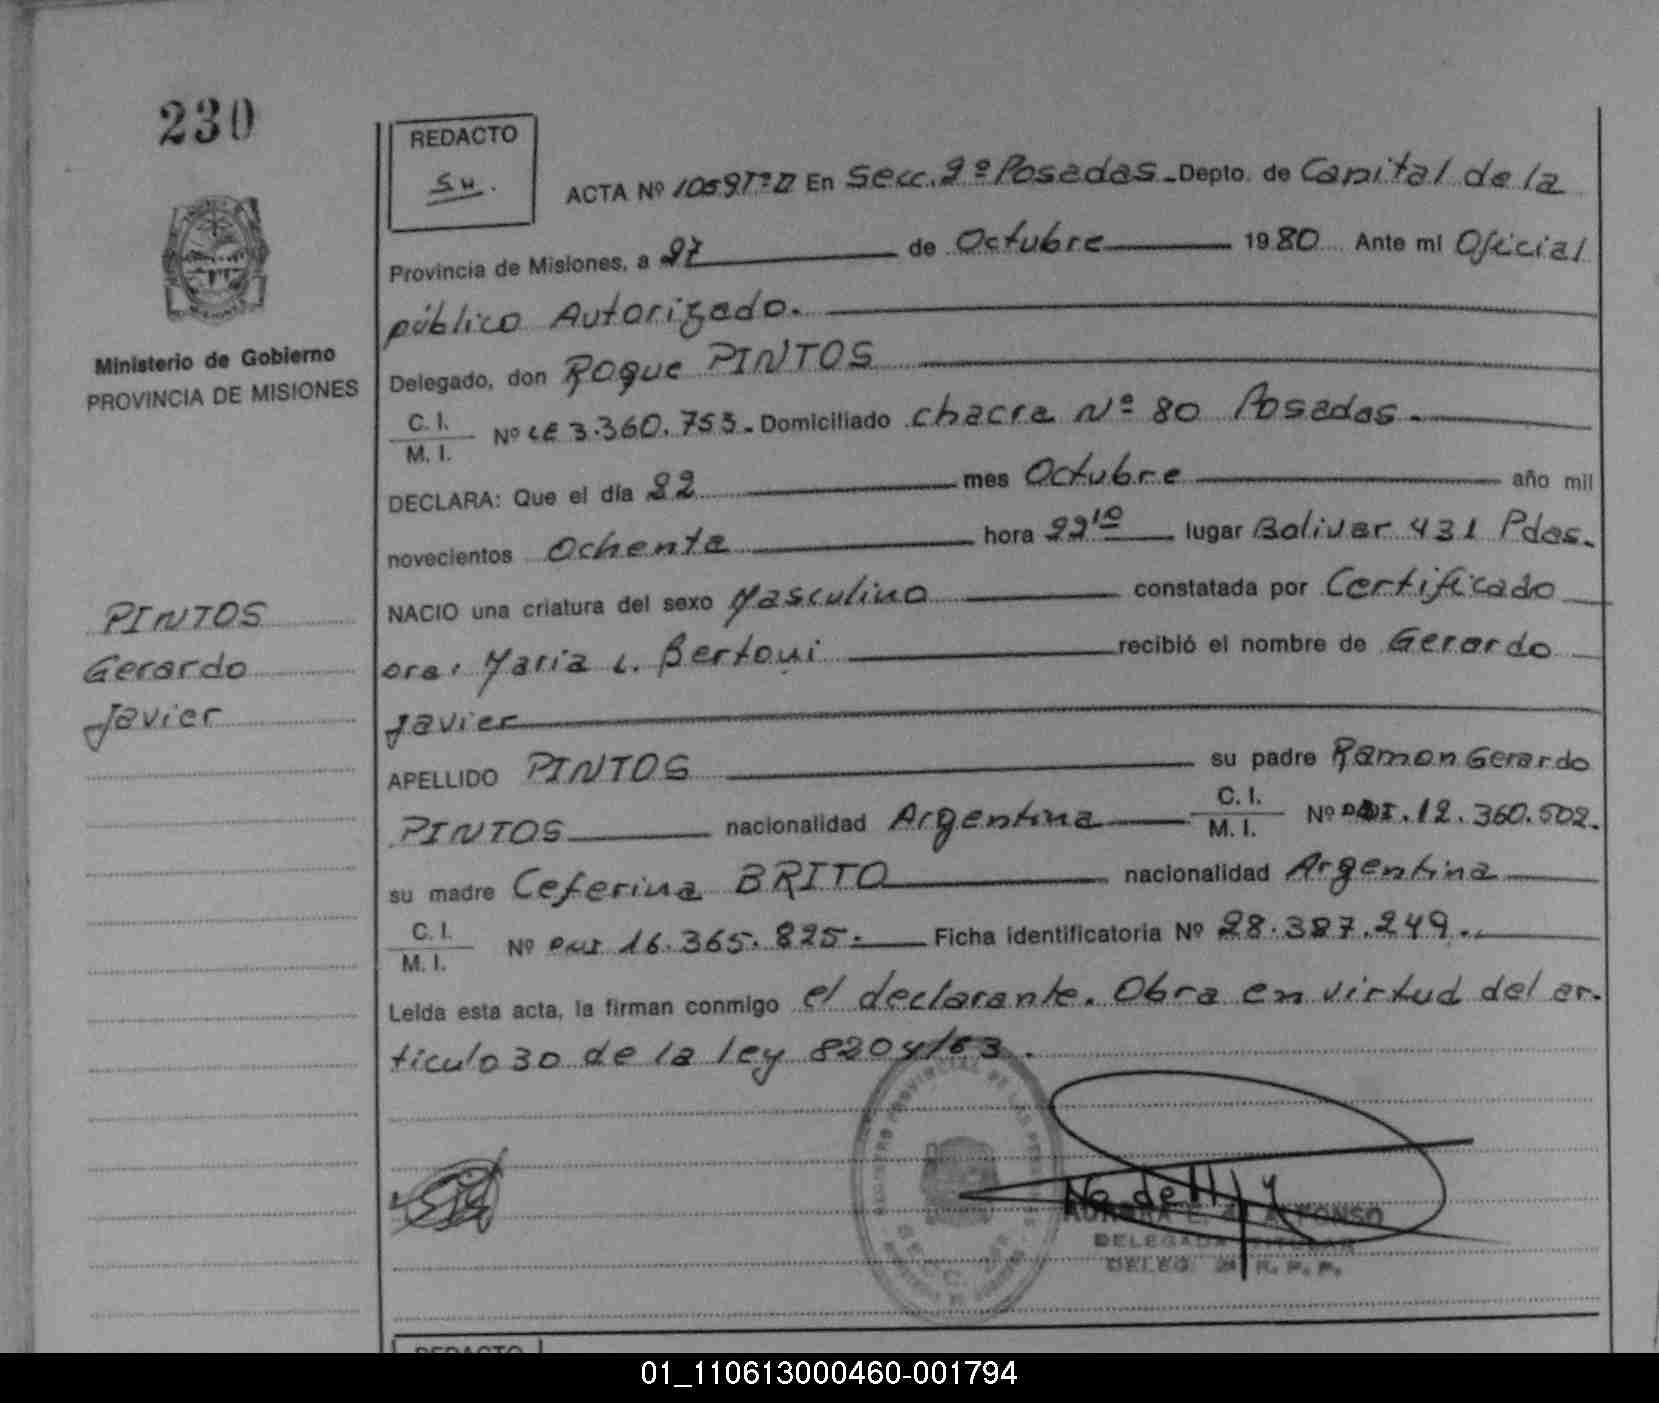 230
REDACTO
Su.
ACTA Nº 1059 Tº II En Secc. 2º Posadas. Depto. de Capital de la
Provincia de Misiones, a 27 de Octubre 1980 Ante mi Oficial
público Autorizado.
Ministerio de Gobierno
PROVINCIA DE MISIONES
Delegado, don Roque PINTOS
C. I.
M. I.
Nº LE 3.360.753. Domiciliado chacra Nº 80 Posadas.
DECLARA: Que el día 22 mes Octubre año mil
novecientos Ochenta hora 22 10 lugar Bolivar 431 Pdas.
NACIO una criatura del sexo Masculino constatada por Certificado
PINTOS
Gerardo
Javier
ora: Maria L. Bertoni recibió el nombre de Gerardo
Javier
APELLIDO PINTOS su padre Ramon Gerardo
PINTOS nacionalidad Argentina C. I. M. I. Nº DNI. 12.360.502.
su madre Ceferina BRITO nacionalidad Argentina
C. I.
M. I.
Nº DNI 16.365.825. Ficha identificatoria Nº 28.387.249.
Leída esta acta, la firman conmigo el declarante. Obra en virtud del ar-
ticulo 30 de la ley 8204/63.
ALFONSO
DELEGADA TITULAR
DELEG. R. P. P.
REDACTO
01_110613000460-001794